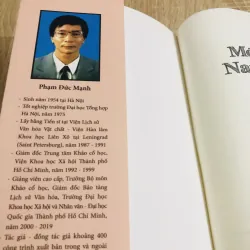 Phạm Đức Mạnh
- Sinh năm 1954 tại Hà Nội
- Tốt nghiệp trường Đại học Tổng hợp
Hà Nội, năm 1975
- Lấy bằng Tiến sĩ tại Viện Lịch sử
Văn hóa Vật chất - Viện Hàn lâm
Khoa học Liên Xô tại Leningrad
(Saint Petersburg), năm 1987 - 1991
- Giám đốc Trung tâm Khảo cổ học,
Viện Khoa học Xã hội Thành phố
Hồ Chí Minh, năm 1992 - 1999
- Giảng viên cao cấp, Trưởng Bộ môn
Khảo cổ học, Giám đốc Bảo tàng
Lịch sử Văn hóa, Trường Đại học
Khoa học Xã hội và Nhân văn - Đại học
Quốc gia Thành phố Hồ Chí Minh,
năm 2000 - 2019
Tác giả - đồng tác giả khoảng 400
công trình xuất bản trong và ngoài
Na